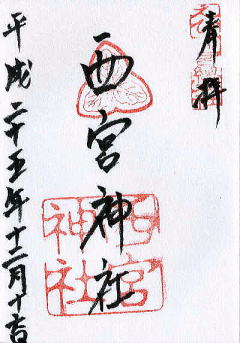 奉拝
西宮神社
西宮神社
平成二十五年十二月十吉